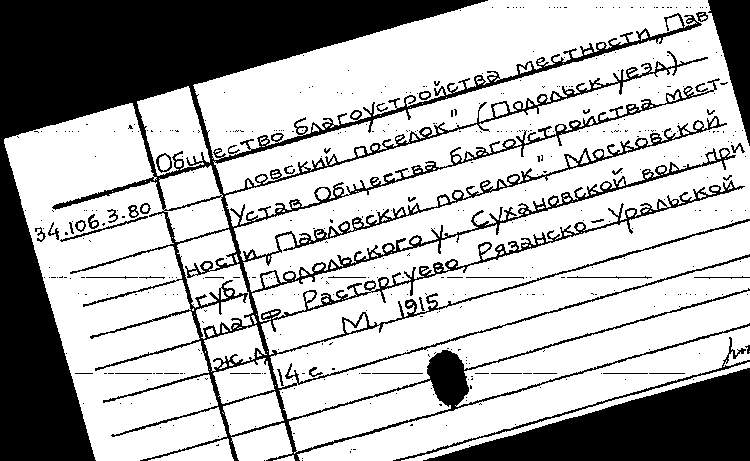 Общество благоустройства местности „Пав-
ловский поселок". (Подольск. уезд).
34.106.3.80
Устав Общества благоустройства мест-
ности „Павловский поселок", Московской
губ., Подольского у., Сухановской вол., при
платф. Расторгуево, Рязанско-Уральской
ж.д. М., 1915.
14 с.